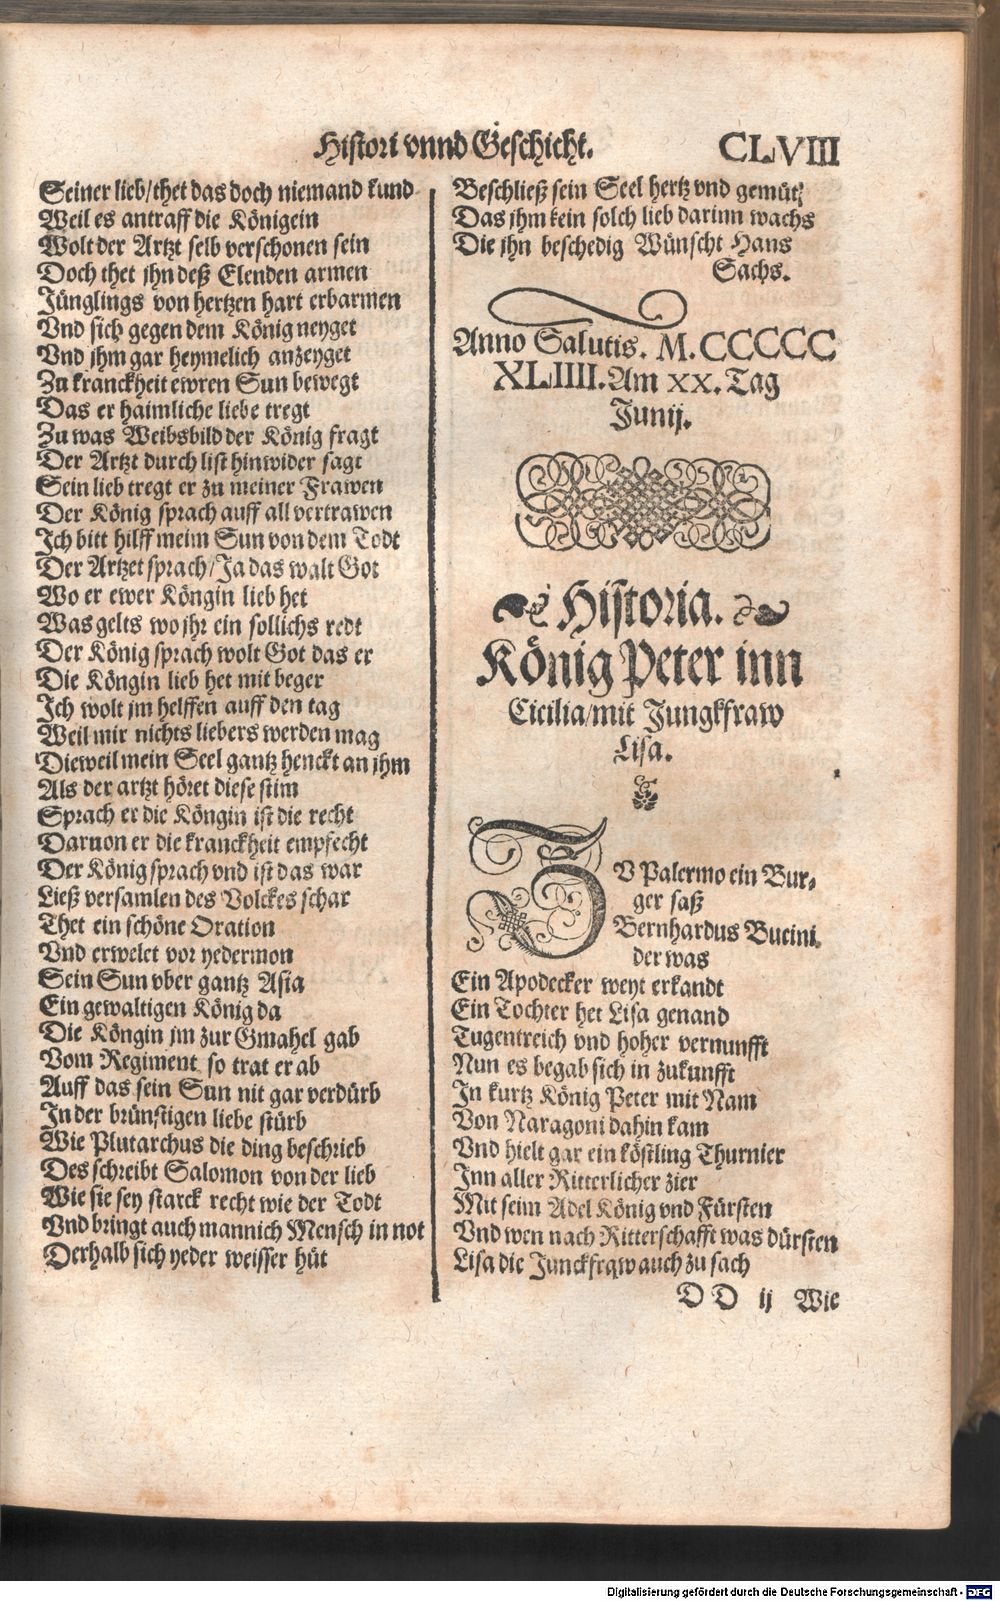 Histori vnnd Geschicht.
CLVIII
Seiner lieb/thet das doch niemand kund
Weil es antraff die Königein
Wolt der Artzt selb verschonen sein
Doch thet jhn deß Elenden armen
Jünglings von hertzen hart erbarmen
Vnd sich gegen dem König neyget
Vnd jhm gar heymelich anzeyget
Zu kranckheit ewren Sun bewegt
Das er haimliche liebe tregt
Zu was Weibsbild der König fragt
Der Artzt durch list hinwider sagt
Sein lieb tregt er zu meiner Frawen
Der König sprach auff all vertrawen
Ich bitt hilff meim Sun von dem Todt
Der Artzet sprach/Ja das walt Got
Wo er ewer Köngin lieb het
Was gelts wo jhr ein sollichs redt
Der König sprach wolt Got das er
Die Köngin lieb het mit beger
Ich wolt jm helffen auff den tag
Weil mir nichts liebers werden mag
Dieweil mein Seel gantz henckt an jhm
Als der artzt höret diese stim
Sprach er die Köngin ist die recht
Daruon er die kranckheit empfecht
Der König sprach vnd ist das war
Ließ versamlen des Volckes schar
Thet ein schöne Oration
Vnd erwelet vor yedermon
Sein Sun vber gantz Asia
Ein gewaltigen König da
Die Köngin jm zur Gmahel gab
Vom Regiment so trat er ab
Auff das sein Sun nit gar verdürb
In der brünstigen liebe stürb
Wie Plutarchus die ding beschrieb
Des schreibt Salomon von der lieb
Wie sie sey starck recht wie der Todt
Vnd bringt auch mannich Mensch in not
Derhalb sich yeder weisser hüt
Beschließ sein Seel hertz vnd gemüt/
Das jhm kein solch lieb darinn wachs
Die jhn beschedig Wünscht Hans
Sachs.
Anno Salutis. M.CCCCC
XLIIII. Am XX. Tag
Junij.
Historia.
König Peter inn
Cicilia/mit Jungkfraw
Lisa.
ZV Palermo ein Bur-
ger saß
Bernhardus Bucini
der was
Ein Apodecker weyt erkandt
Ein Tochter het Lisa genand
Tugentreich vnd hoher vernunfft
Nun es begab sich in zukunfft
In kurtz König Peter mit Nam
Von Naragoni dahin kam
Vnd hielt gar ein köstling Thurnier
Inn aller Ritterlicher zier
Mit seim Adel König vnd Fürsten
Vnd wen nach Ritterschafft was dürsten
Lisa die Junckfraw auch zu sach
DD ij Wie
Digitalisierung gefördert durch die Deutsche Forschungsgemeinschaft - DFG